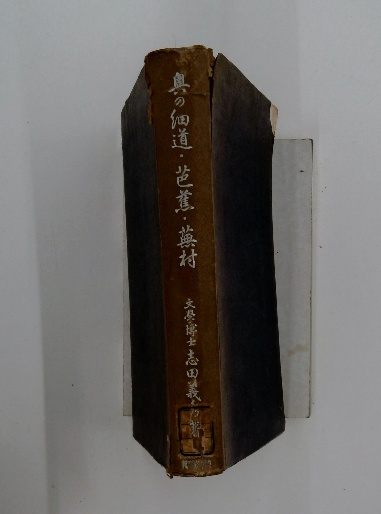 奥の細道・芭蕉・蕪村
文學博士 志田義